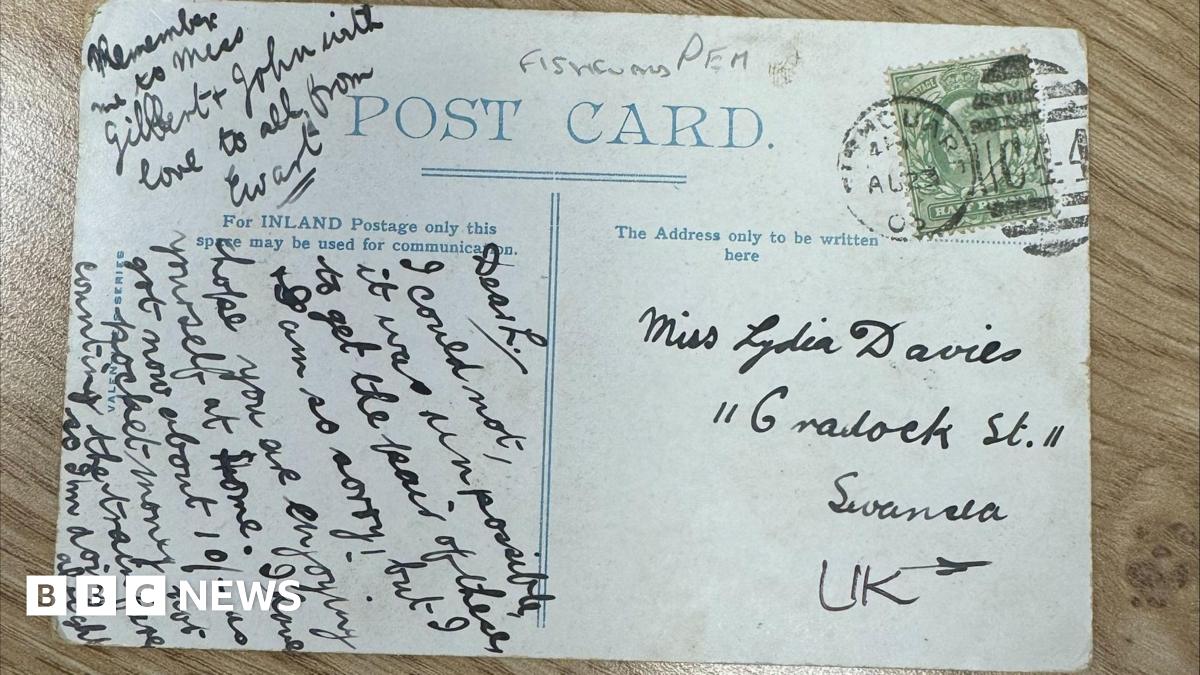 Remember
me to Miss
Gilbert + John with
love to all from
Ewart
FISHGUARD PEM
POST CARD.
For INLAND Postage only this
space may be used for communication.
The Address only to be written
here
VALENTINE SERIES
HALF PENNY
AU 23
Dear L.,
I could not,
it was unpossible,
to get the pair of these
I am so sorry! but I
hope you are enjoying
yourself at home. I have
got now about 10/- as
pocket-money not
counting the train fare
so I'm doing
alright
Miss Lydia Davies
"Cradock St."
Swansea
UK
BBC NEWS